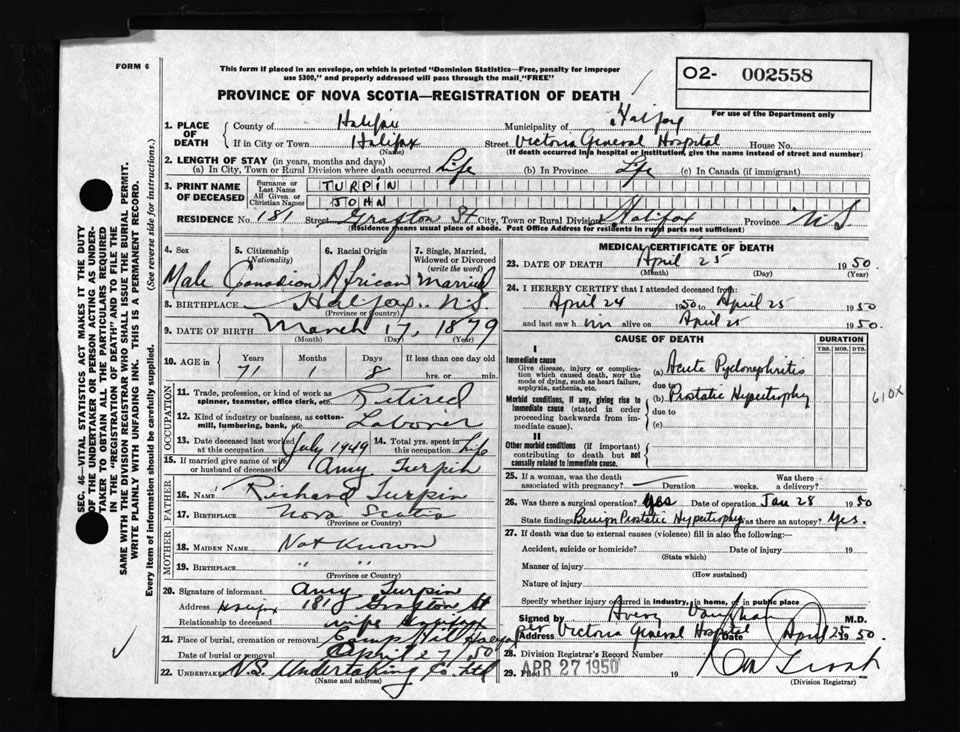 FORM 6
This form if placed in an envelope, on which is printed "Dominion Statistics—Free, penalty for improper
use $300," and properly addressed will pass through the mail "FREE"
PROVINCE OF NOVA SCOTIA—REGISTRATION OF DEATH
02- 002558
For use of the Department only
1. PLACE OF DEATH
County of Halifax
Municipality of Halifax
If in City or Town Halifax (Name)
Street Victoria General Hospital House No.
(If death occurred in a hospital or institution, give the name instead of street and number)
2. LENGTH OF STAY (in years, months and days)
(a) In City, Town or Rural Division where death occurred Life (b) In Province Life (c) In Canada (if immigrant)
3. PRINT NAME OF DECEASED
Surname or Last Name TURPIN
All Given or Christian Names JOHN
RESIDENCE No. 181 Street Grafton St City, Town or Rural Division Halifax Province N.S.
(Residence means usual place of abode. Post Office Address for residents in rural parts not sufficient)
4. Sex
5. Citizenship (Nationality)
6. Racial Origin
7. Single, Married, Widowed or Divorced (write the word)
Male Canadian African Married
8. BIRTHPLACE Halifax N.S.
(Province or Country)
9. DATE OF BIRTH March 17, 1879
(Month) (Day) (Year)
10. AGE in
Years Months Days If less than one day old
71 1 8 hrs. or min.
OCCUPATION
11. Trade, profession, or kind of work as
spinner, teamster, office clerk, etc. Retired
12. Kind of industry or business, as cotton-
mill, lumbering, bank, etc. Laborer
13. Date deceased last worked at this occupation July 1949
14. Total yrs. spent in this occupation life
15. If married give name of wife
or husband of deceased Amy Turpin
FATHER
16. Name Richard Turpin
17. Birthplace Nova Scotia
(Province or Country)
MOTHER
18. MAIDEN NAME Not Known
19. BIRTHPLACE " "
(Province or Country)
20. Signature of informant Amy Turpin
Address Halifax 181 Grafton St
Relationship to deceased wife
21. Place of burial, cremation or removal Camp Hill Halifax
Date of burial or removal April 27 50
22. UNDERTAKER N.S. Undertaking Co. Ltd
(Name and address)
MEDICAL CERTIFICATE OF DEATH
23. DATE OF DEATH April 25 1950
(Month) (Day) (Year)
24. I HEREBY CERTIFY that I attended deceased from:
April 24 1950 to April 25 1950
and last saw him alive on April 25 1950.
CAUSE OF DEATH
DURATION
YRS. MOS. DYS.
I
Immediate cause
Give disease, injury or complication which caused death, not the mode of dying, such as heart failure, asphyxia, asthenia, etc.
(a) Acute Pyelonephritis
due to
Morbid conditions, if any, giving rise to immediate cause (stated in order proceeding backwards from immediate cause).
(b) Prostatic Hypertrophy
due to
(c)
610X
II
Other morbid conditions (if important) contributing to death but not causally related to immediate cause.
25. If a woman, was the death
associated with pregnancy? Duration weeks. Was there a delivery?
26. Was there a surgical operation? Yes Date of operation Jan 28 1950
State findings Benign Prostatic Hypertrophy Was there an autopsy? Yes.
27. If death was due to external causes (violence) fill in also the following:—
Accident, suicide or homicide? Date of injury 19
(State which)
Manner of injury
(How sustained)
Nature of injury
Specify whether injury occurred in industry, in home, or in public place
Signed by Avery Vaughan M.D.
Address Victoria General Hospital Date April 25 1950.
28. Division Registrar's Record Number
29. Filed APR 27 1950 19
(Division Registrar)
SEC. 46—VITAL STATISTICS ACT MAKES IT THE DUTY
OF THE UNDERTAKER OR PERSON ACTING AS UNDER-
TAKER TO OBTAIN ALL THE PARTICULARS REQUIRED
IN THE "REGISTRATION OF DEATH" AND TO FILE THE
SAME WITH THE DIVISION REGISTRAR WHO SHALL ISSUE THE BURIAL PERMIT.
WRITE PLAINLY WITH UNFADING INK. THIS IS A PERMANENT RECORD.
Every item of information should be carefully supplied. (See reverse side for instructions.)